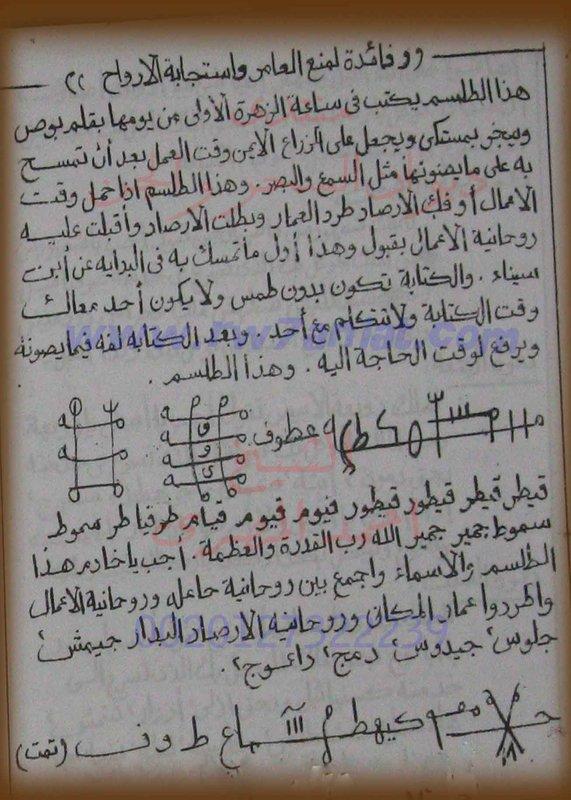 وفائدة لمنع العامر واستجابة الارواح
هذا الطلسم يكتب فى ساعة الزهرة الأولى من يومها بقلم بوص
ويبخر بمستكى ويجعل على الزراع الايمن وقت العمل بعد أن تمسح
به على ما يصونها مثل السمع والبصر. وهذا الطلسم اذا حمل وقت
الاعمال أو فك الارصاد طرد العمار وبطلت الارصاد وأقبلت عليه
روحانية الاعمال بقبول وهذا أول ما تمسك به فى البدايه عن أبن
سيناء. والكتابة تكون بدون طمس ولا يكون أحد معاك
وقت الكتابة ولا تتكلم مع أحد. وبعد الكتابه لفه فيما يصونه
www.nw7amat.com
ويرفع لوقت الحاجة اليه. وهذا الطلسم.
عطوف
قيطر قيطر قيطور قيطور فيوم قيوم قيام طرفنا طر مموط
سموط جمير جمير الله رب القدرة والعظمة. أجب ياخادم هذا
الطلسم والاسماء واجمع بين روحانية حامله وروحانية الاعمال
واطردوا عمار المكان وروحانية الارصاد البدار جيمش
0020127322239
جلوس جيدوس دمج داعوج.
كيهط ماع ط و ف (تمت)